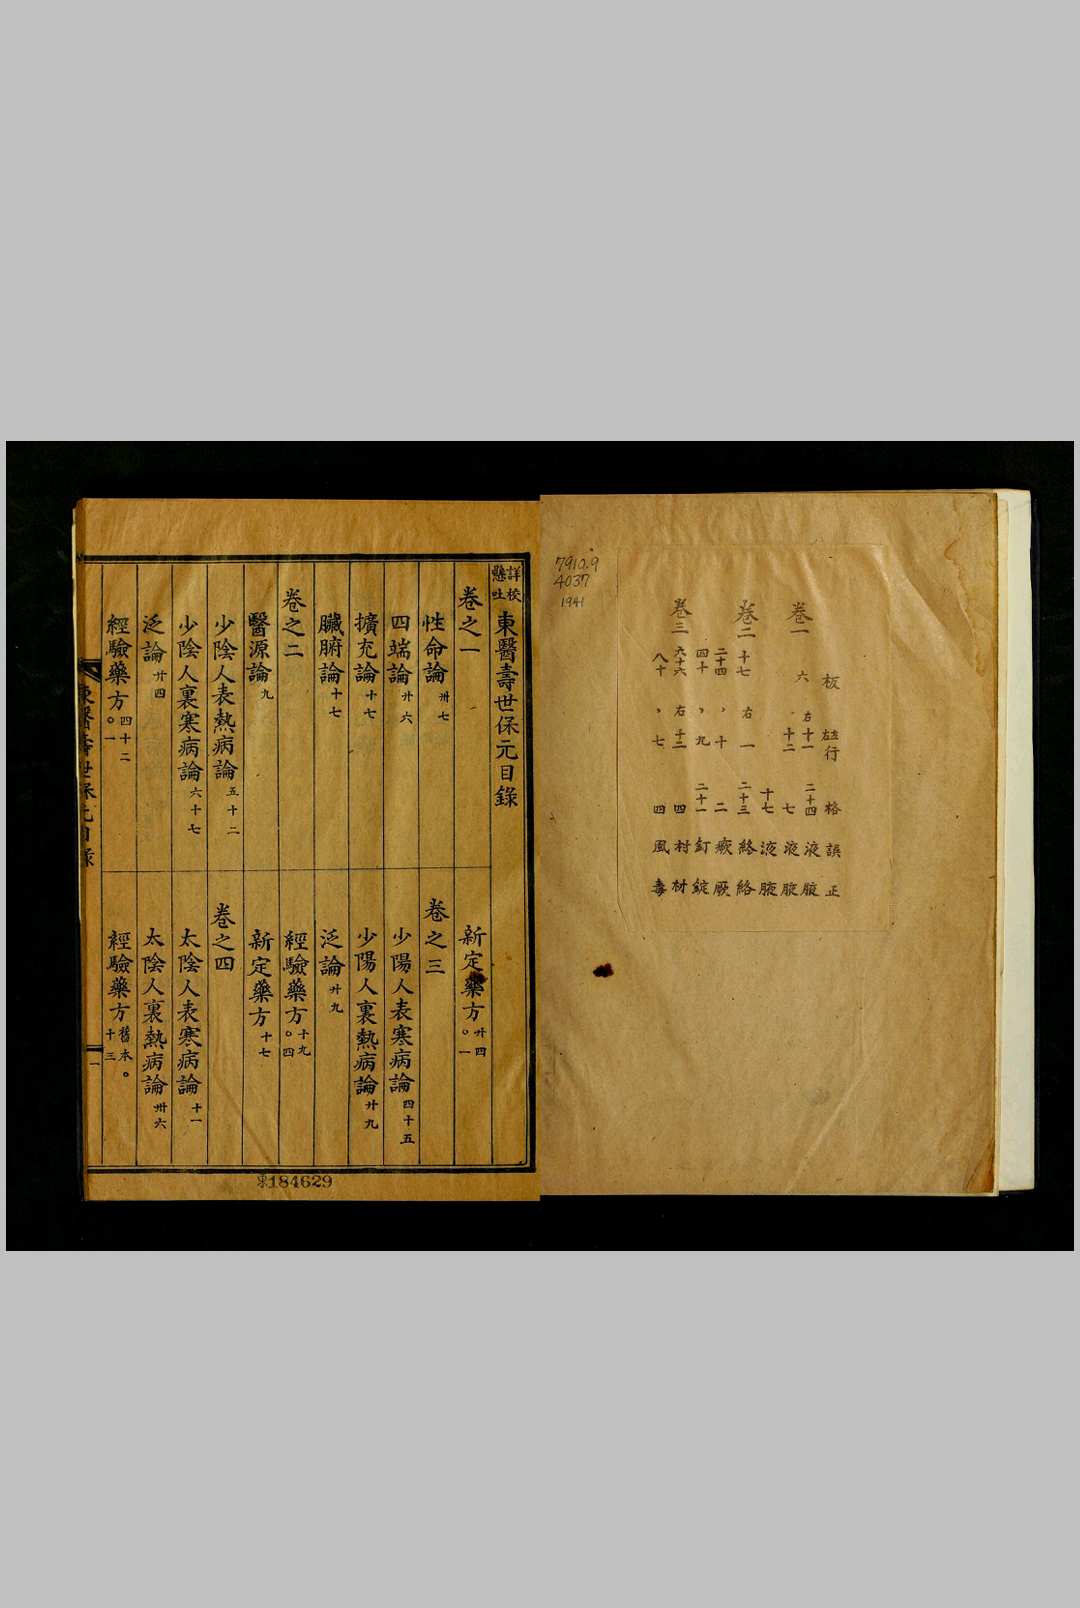 7910.9
4037
1941
板 左右行 格 誤 正
卷一 六 右十一 二十四 液 腋
十二 七 液 腋
十七 液 腋
卷二 十七 右一 二十三 絡 絡
二十四 、十 二 瘚 厥
四十 、九 二十一 釘 錠
卷三 六十六 右十二 四 村 材
八十 、七 四 風 毒
詳校
懸吐
東醫壽世保元目錄
卷之一
性命論 卅七
四端論 廾六
擴充論 十七
臟腑論 十七
卷之二
醫源論 九
少陰人表熱病論 五十二
少陰人裏寒病論 六十七
泛論 廾四
經驗藥方 四十二
○一
新定藥方 廾四
○一
卷之三
少陽人表寒病論 四十五
少陽人裏熱病論 廾九
泛論 廾九
經驗藥方 十九
○四
新定藥方 十七
卷之四
太陰人表寒病論 十一
太陰人裏熱病論 卅六
經驗藥方 舊本。
十三
東醫壽世保元目錄
一
東184629